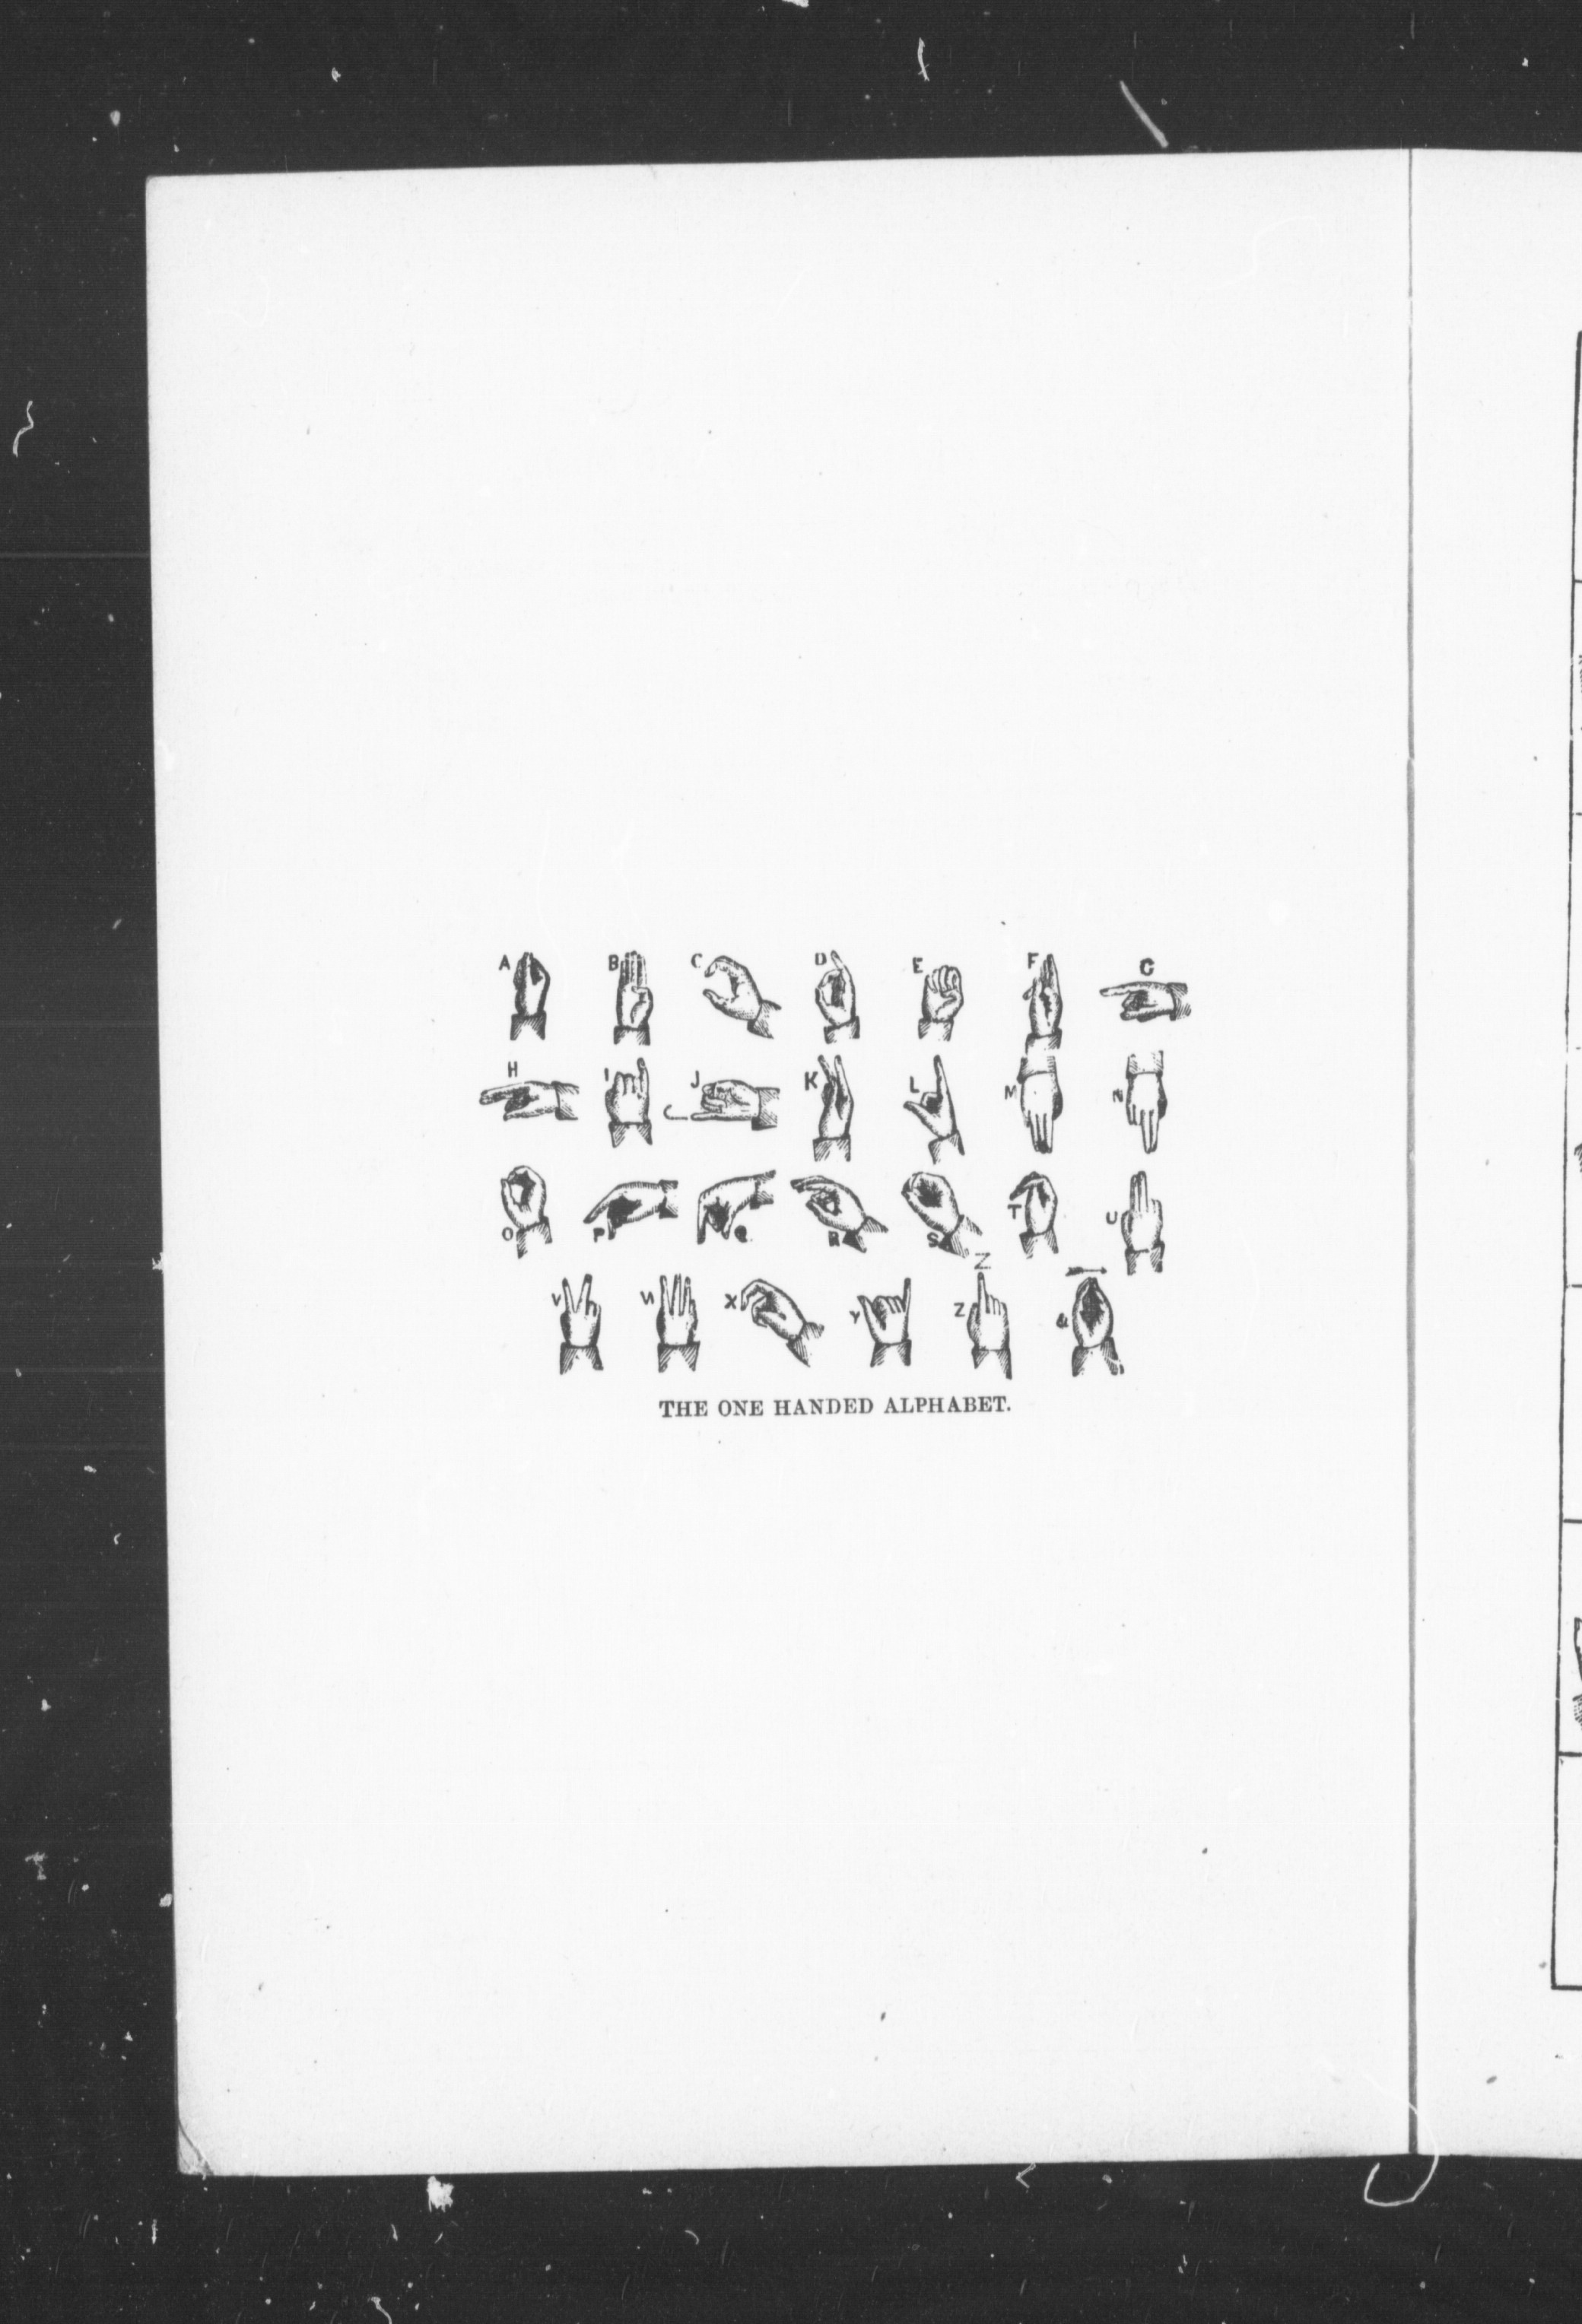 A B C D E F G
H I J K L M N
O P Q R S T U
Z
V W X Y Z &
THE ONE HANDED ALPHABET.